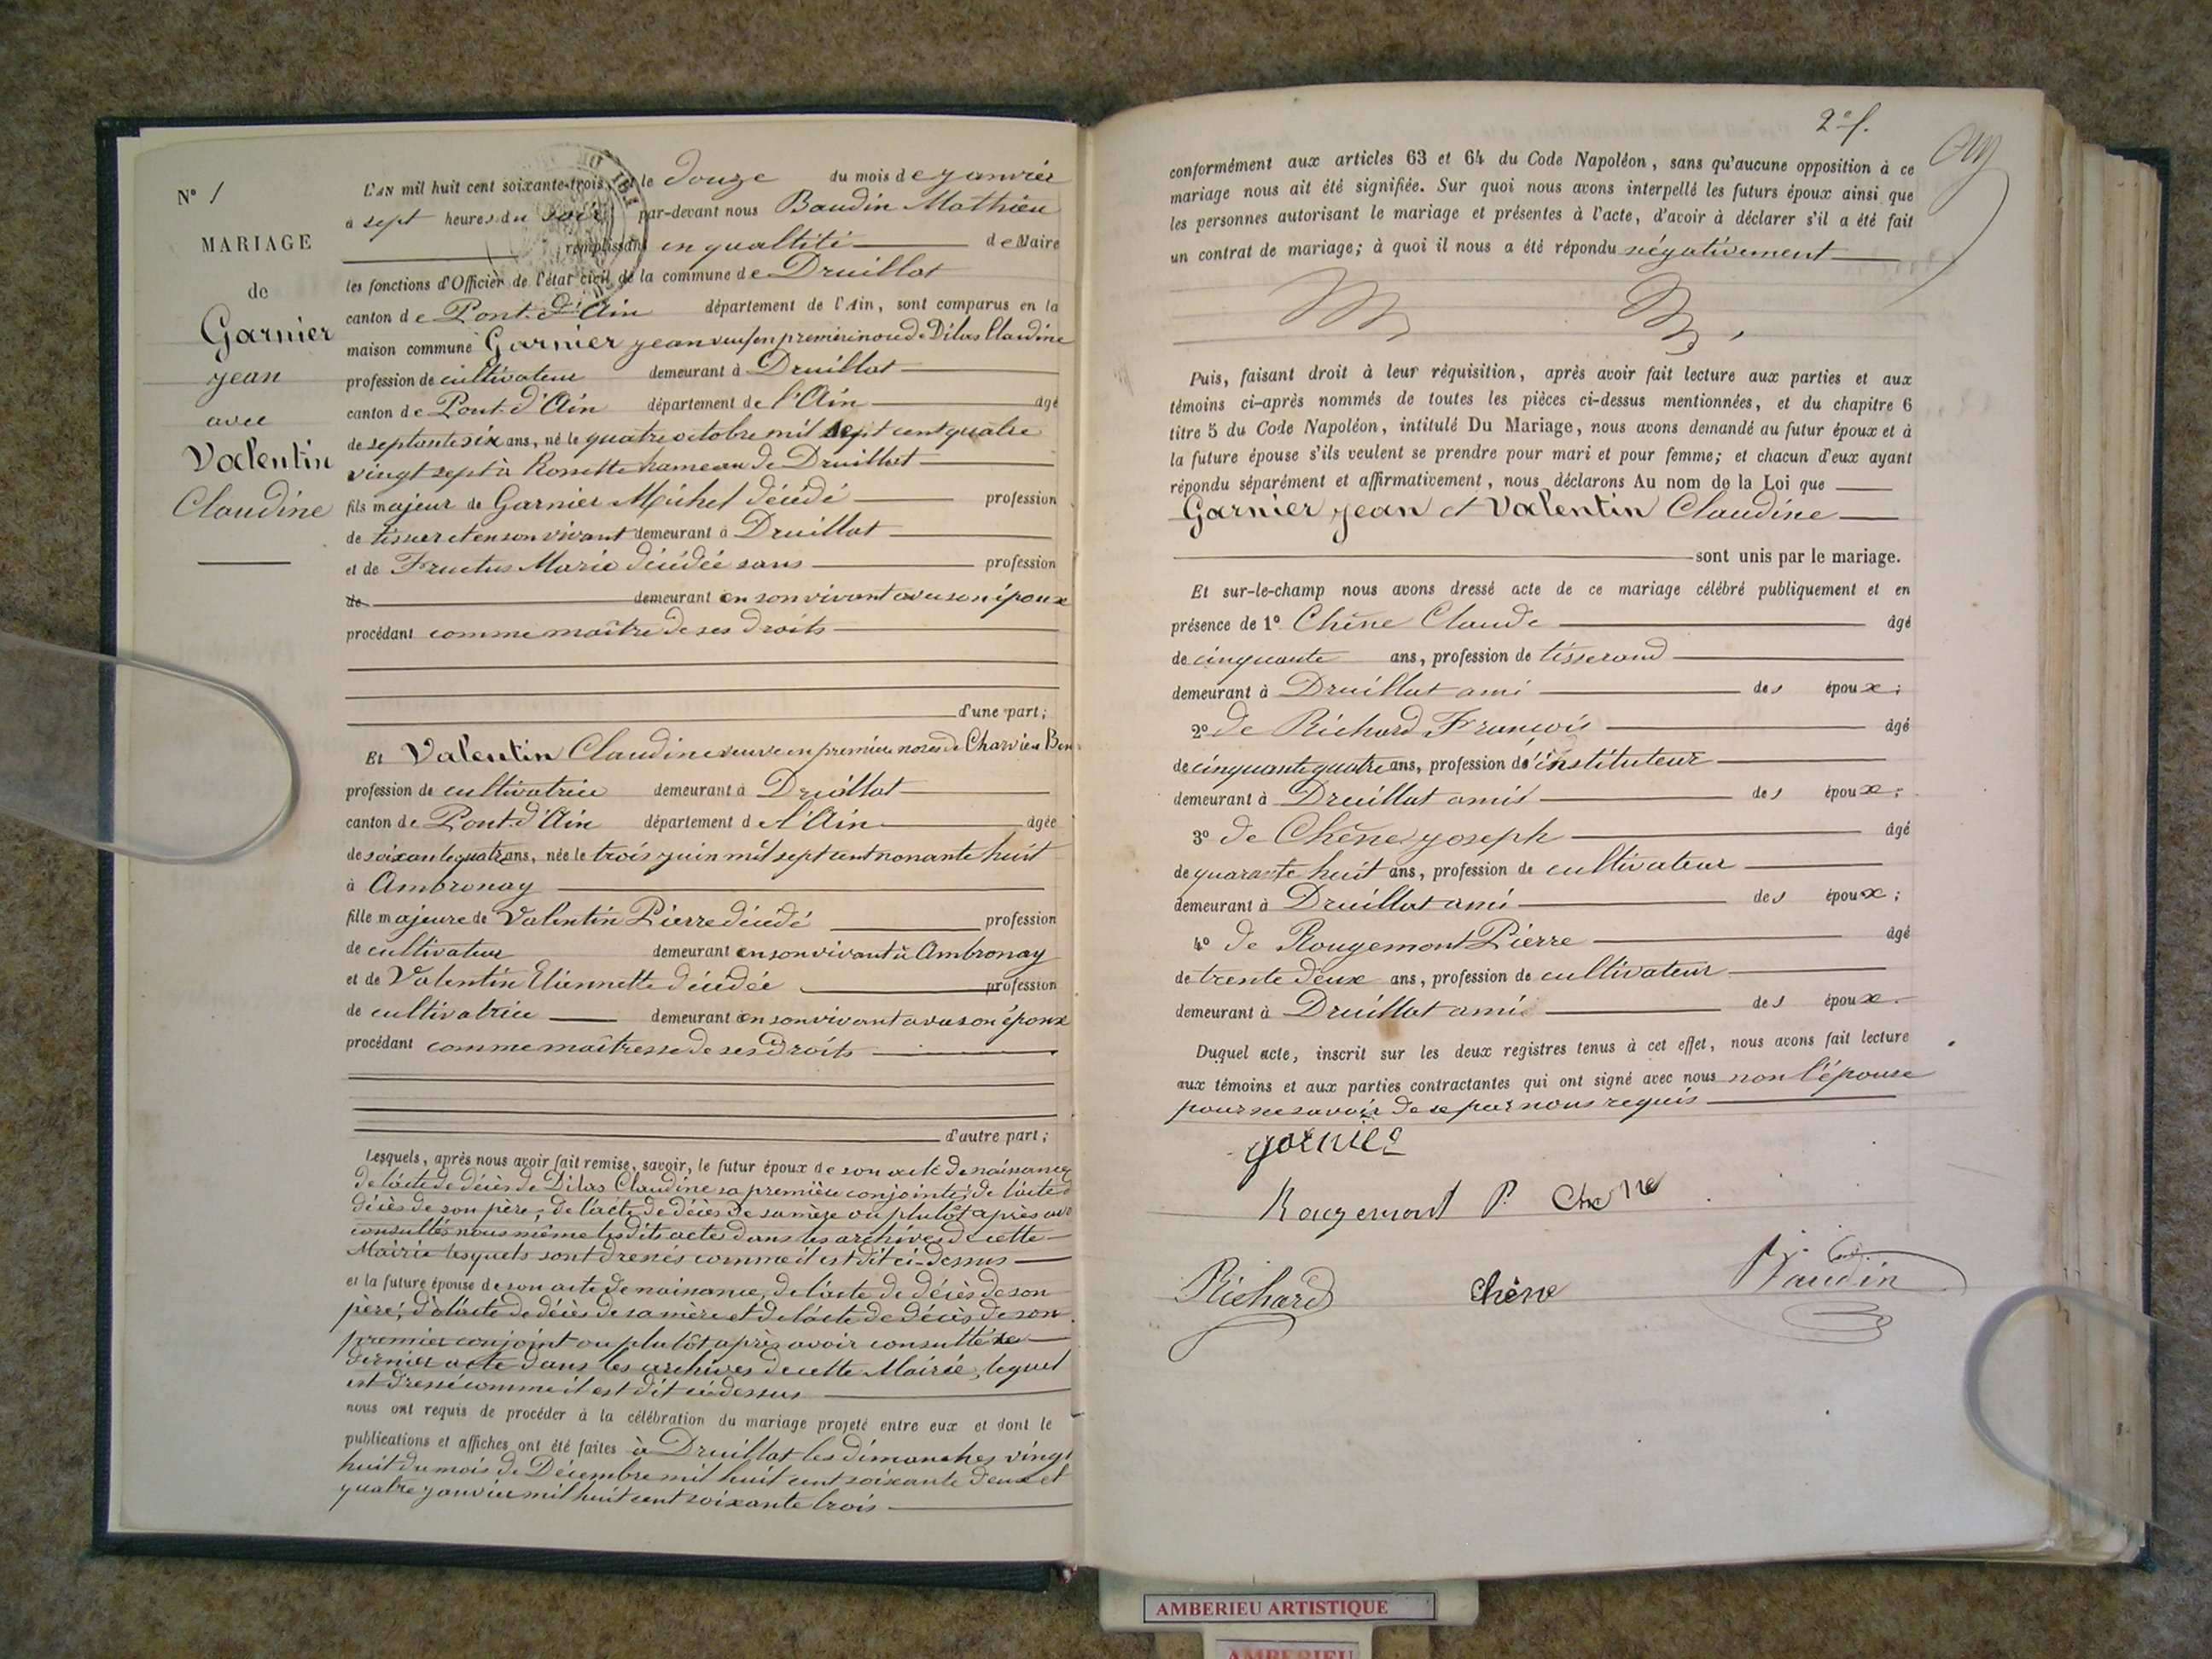 N° 1
MARIAGE
de
Garnier
jean
avec
Valentin
Claudine
L'AN mil huit cent soixante-trois, et le Douze du mois de janvier
à sept heures du soir par-devant nous Baudin Mathieu
remplissant en qualtité de Maire
les fonctions d'Officier de l'état civil de la commune de Druillat
canton de Pont-d'Ain département de l'Ain, sont comparus en la
maison commune Garnier jean veuf en premieri noce de Dilas Claudine
profession de cultivateur demeurant à Druillat
canton de Pont-d'Ain département de l'Ain âgé
de septante six ans, né le quatre octobre mil sept cent quatre
vingt sept à Rossette hameau de Druillat
fils majeur de Garnier Michel décédé profession
de tissier et en son vivant demeurant à Druillat
et de Fructus Marie décédée sans profession
de demeurant en son vivant avec son époux
procédant comme maître de ses droits
d'une part;
Et Valentin Claudine veuve en premiere noces de Charvieu Ben
profession de cultivatrice demeurant à Druillat
canton de Pont-d'Ain département de l'Ain âgée
de soixante quatre ans, née le trois juin mil sept cent nonante huit
à Ambronay
fille majeure de Valentin Pierre décédé profession
de cultivateur demeurant en son vivant à Ambronay
et de Valentin Etiennette décédée profession
de cultivatrice demeurant en son vivant avec son époux
procédant comme maîtresse de ses droits
d'autre part;
Lesquels, après nous avoir fait remise, savoir, le futur époux de son acte de naissance
de l'acte de décès de Dilas Claudine sa première conjointe; de l'acte d
décès de son père; de l'acte de décès de sa mère ou plutôt après avo
consultés nous même les dits actes dans les archives de cette
Mairie lesquels sont dressés comme il est dit ci-dessus
et la future épouse de son acte de naissance, de l'acte de décès de son
père; de l'acte de décès de sa mère et de l'acte de décès de son
premier conjoint ou plutôt après avoir consulté ce
dernier acte dans les archives de cette Mairie, lequel
est dressé comme il est dit ci-dessus
nous ont requis de procéder à la célébration du mariage projeté entre eux et dont le
publications et affiches ont été faites à Druillat les dimanches vingt
huit du mois de Décembre mil huit cent soixante deux et
quatre janvier mil huit cent soixante trois
2e f.
conformément aux articles 63 et 64 du Code Napoléon, sans qu'aucune opposition à ce
mariage nous ait été signifiée. Sur quoi nous avons interpellé les futurs époux ainsi que
les personnes autorisant le mariage et présentes à l'acte, d'avoir à déclarer s'il a été fait
un contrat de mariage; à quoi il nous a été répondu négativement
Puis, faisant droit à leur réquisition, après avoir fait lecture aux parties et aux
témoins ci-après nommés de toutes les pièces ci-dessus mentionnées, et du chapitre 6
titre 5 du Code Napoléon, intitulé Du Mariage, nous avons demandé au futur époux et à
la future épouse s'ils veulent se prendre pour mari et pour femme; et chacun d'eux ayant
répondu séparément et affirmativement, nous déclarons Au nom de la Loi que
Garnier jean et Valentin Claudine
sont unis par le mariage.
Et sur-le-champ nous avons dressé acte de ce mariage célébré publiquement et en
présence de 1° Chêne Claude âgé
de cinquante ans, profession de tisserand
demeurant à Druillat ami des époux;
2° de Richard François âgé
de cinquante quatre ans, profession d'instituteur
demeurant à Druillat ami des époux;
3° de Chêne joseph âgé
de quarante huit ans, profession de cultivateur
demeurant à Druillat ami des époux;
4° de Rougemont Pierre âgé
de trente deux ans, profession de cultivateur
demeurant à Druillat ami des époux.
Duquel acte, inscrit sur les deux registres tenus à cet effet, nous avons fait lecture
aux témoins et aux parties contractantes qui ont signé avec nous non l'épouse
pour ne savoir de ce par nous requis
garnier
Rougemont P. Chene
Richard Chêne Baudin
AMBERIEU ARTISTIQUE
AMBERIEU